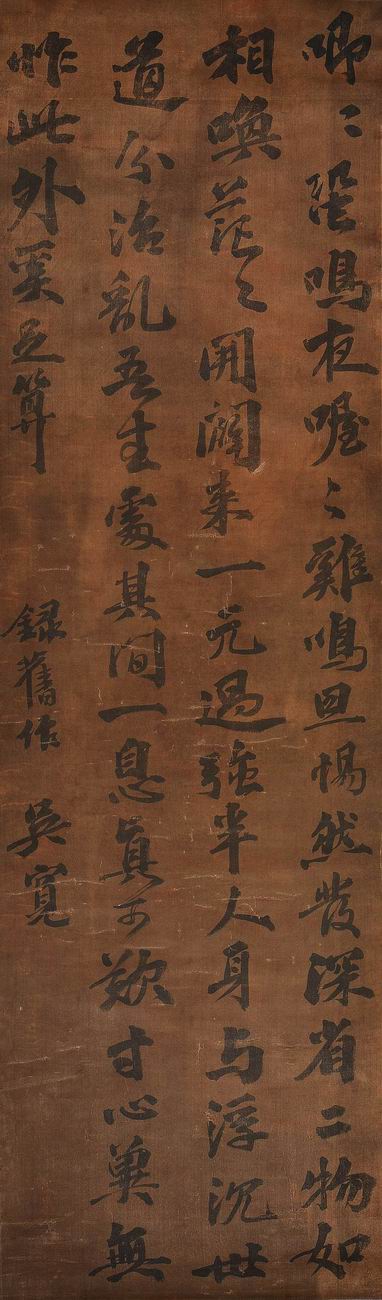 唧〻蛩鳴夜喔〻雞鳴旦惕然發深省二物如
相喚茫〻開闢來一元過強半人身与浮沉世
道分治亂吾生處其間一息真可歎寸心冀無
怍此外奚足算
錄舊作 吳寬